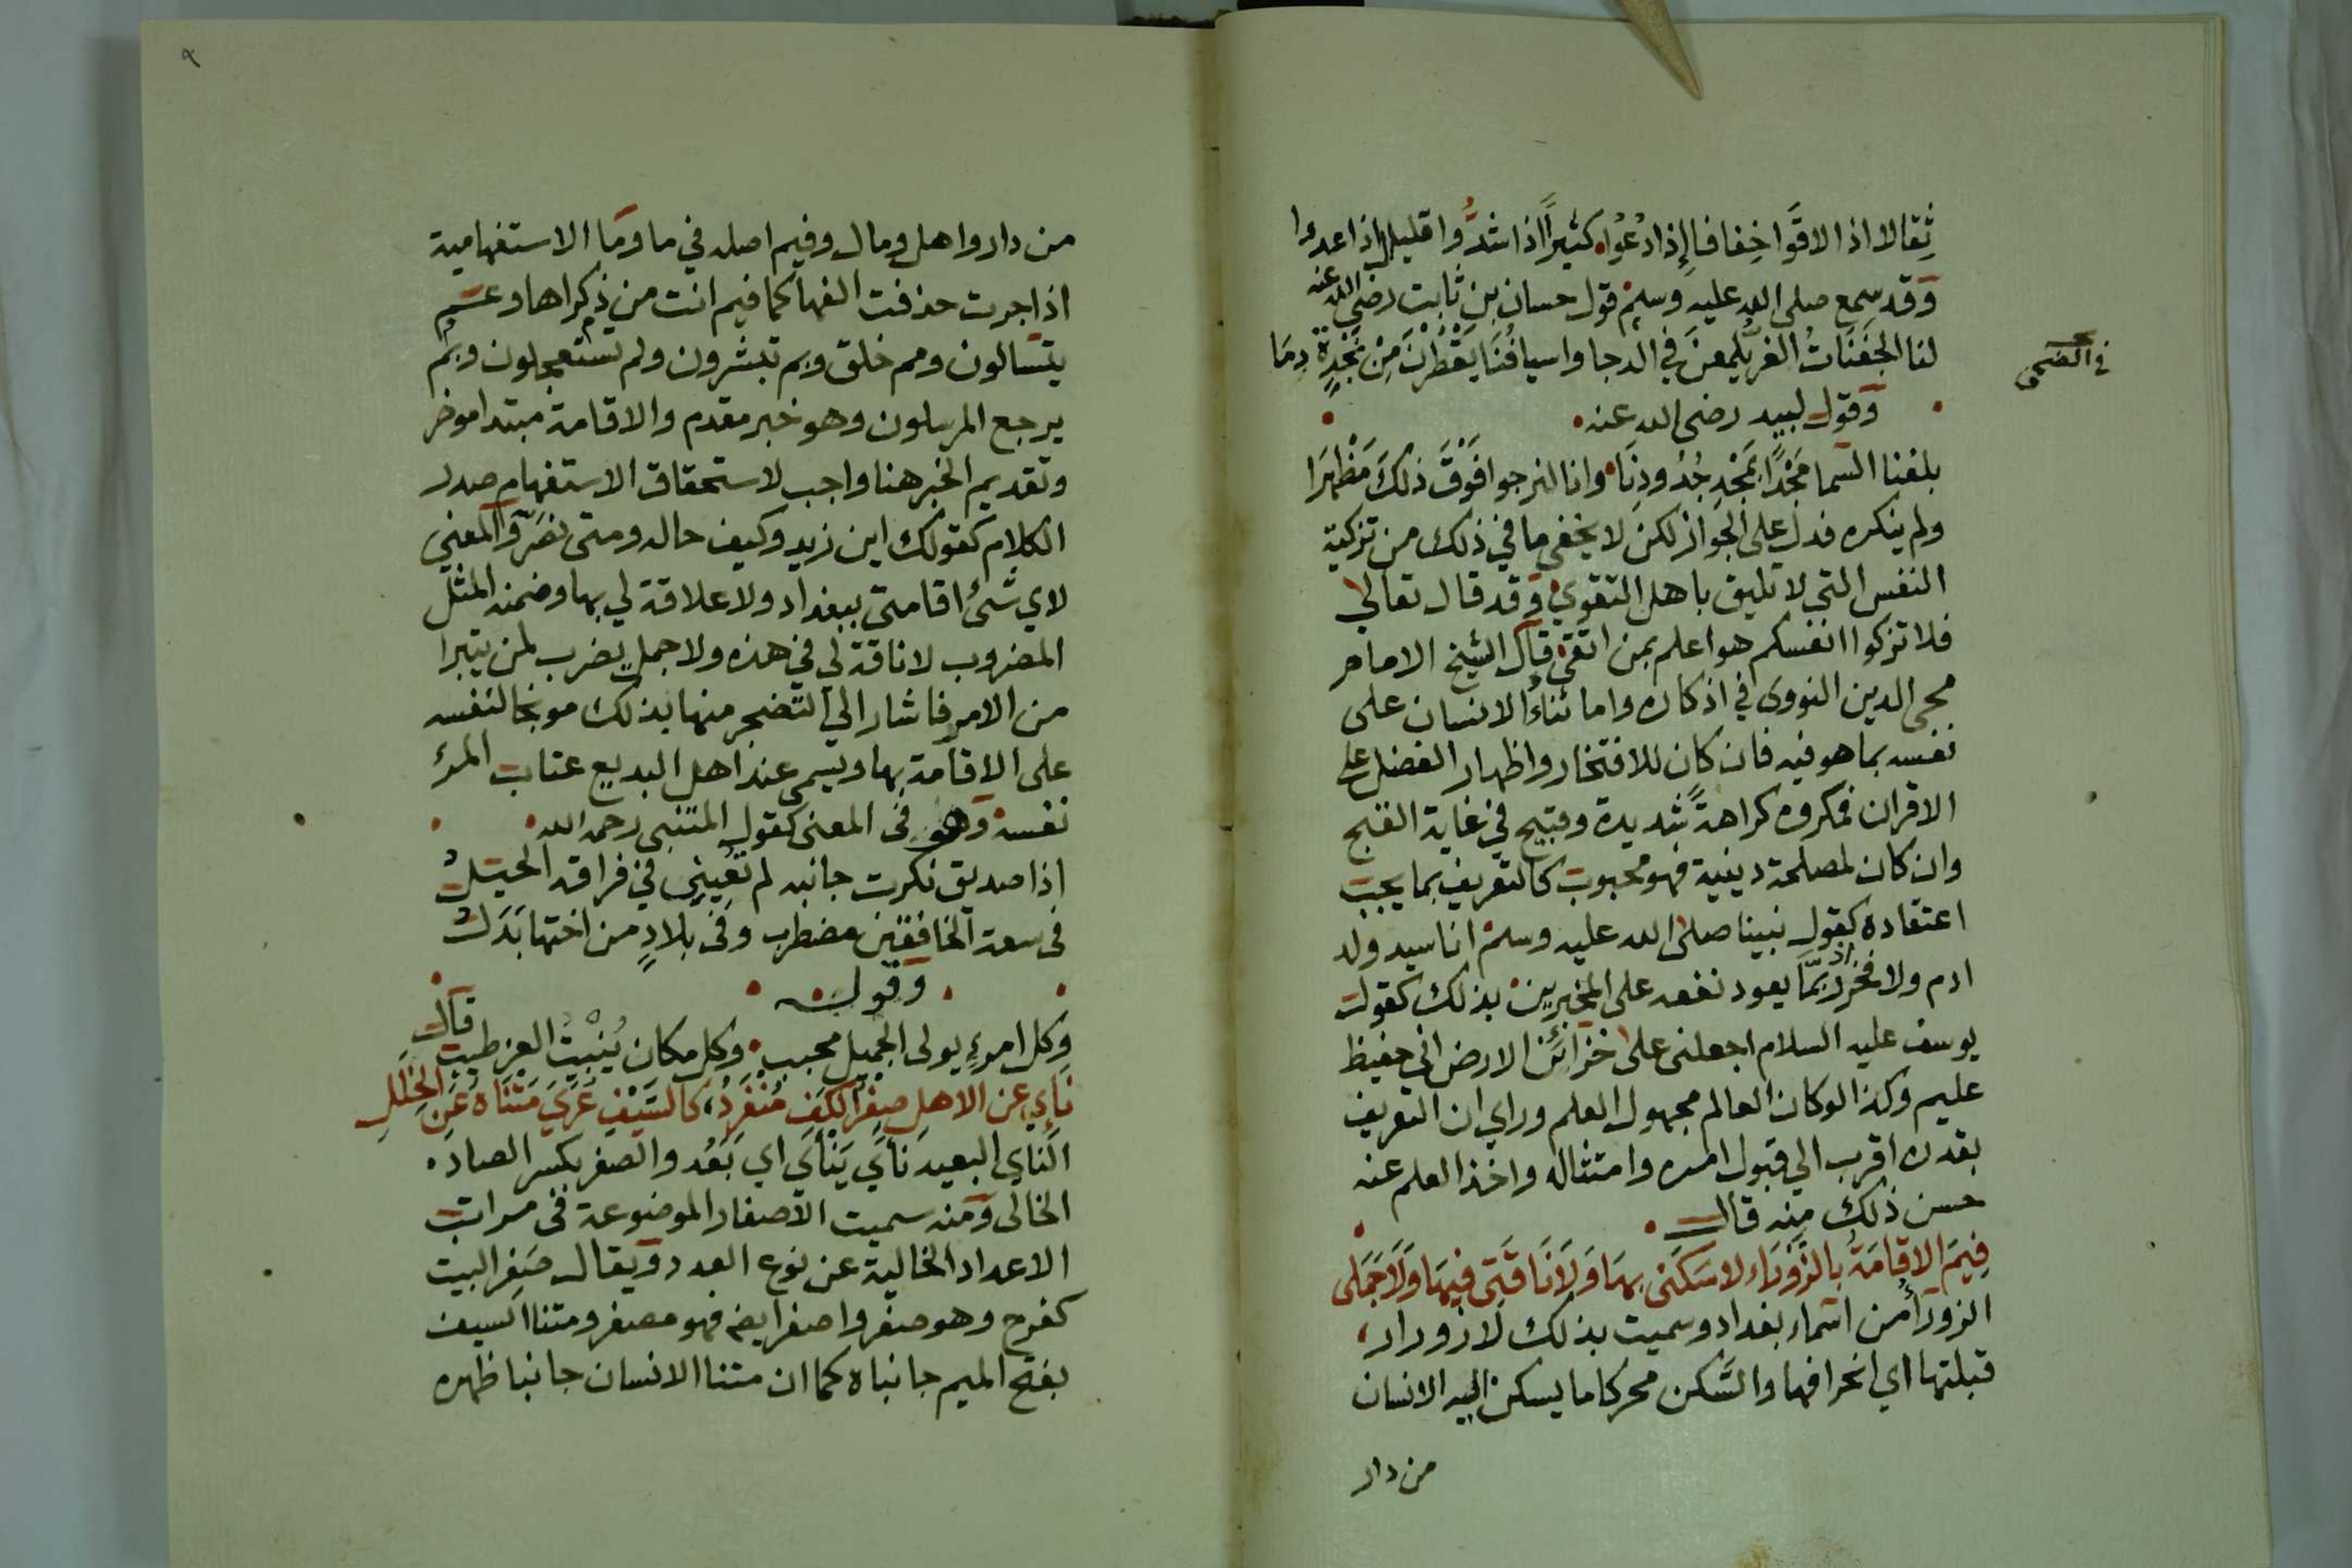 ثِقالا اذا لاقَوا خِفافا إِذا دُعُوا كثيراً اذا اشتدُّوا قليلا اذا عدوا
وَقد سمع صلى الله عليه وسلم قول حسان بن ثابت رضى الله عنه
لنا الجَفَنَاتُ الغرُّ يلمعنَ في الدجا واسيافُنَا يَقْطُرْنَ مِنْ نَجْدةٍ دِمَا
في الضحى
وَقول لبيد رضى الله عنه
بلغنا السّما مَجْدًا بمَجْدِ جُدُودِنَا وانا لنرجوا فَوْقَ ذلكَ مَظْهَرَا
ولم ينكره فدل على الجَواز لكن لا يخفى ما في ذلك من تزكية
النفس التي لا تليق باهل التقوي وَقد قال تعالي
فلا تزكوا انفسكم هو اعلم بمن اتقى قال الشيخ الامام
محى الدين النووى في اذكاره واما ثناءُ الانسان على
نفسه بما هو فيه فان كان للافتخار واظهار الفضل على
الاقران فمكروه كراهةً شديدة وقبيح في غاية القبح
وان كان لمصلحة دينية فهو محبوب كالتعريف بما يجب
اعتقاده كقول نبينا صلى الله عليه وسلم انا سيد ولد
ادم ولا فخر اذ ربمّا يعود نفعه على المخبرين بذلك كقول
يوسف عليه السلام اجعلنى على خزائن الارض اني حفيظ
عليم وكذا لو كان العالم مجهول العلم وراي ان التعريف
بقدره اقرب الي قبول امره وامتثاله واخذ العلم عنه
حسن ذلك منه قال
فِيمَ الاِقامَةُ بالزَّوْرَاءِ لا سَكَنى بهَا وَلَا نَاقَتى فيهَا وَلَا جَمَلى
الزورآءُ من اسماء بغداد وسميت بذلك لازورار
قبلتها اي انحرافها والسَّكن محركا ما يسكن اليه الانسان
من دار
٩
من دار واهل ومال وفيم اصله في ما وَمَا الاستفهامية
اذا جرت حذفت الفها كما فيم انت من ذكراها وعَمَّ
يتسالون ومم خلق وبم تبشرون ولم تستعجلون وبم
يرجع المرسلون وهو خبر مقدم والاقامة مبتدا موخر
وتقديم الخبر هنا واجب لاستحقاق الاستفهام صدر
الكلام كقولك اين زيد وكيف حاله ومتى نصرٌ وَالمعنى
لاي شئ اقامتى ببغداد ولا علاقة لي بها وضمنه المثل
المضروب لا ناقة لى في هذه ولا جمل يضرب لمن يتبرا
من الامر فاشار الي التضجر منها بذلك موبخا لنفسه
على الاقامة بها ويسمى عند اهل البديع عتاب المرءِ
نفسه وَهو فى المعنى كقول المتنبى رحمه الله
اذا صديق نكرت جانبه لم تُعيِنِى في فراقه الحيَلُ
فى سعة الخافقَين مضطرب وَفى بلادٍ من اختها بَدَلُ
وَقوله
وَكل امرءٍ يولى الجميل محبب وكل مكان يُنْبِتُ العز طيبُ قال
نَاءٍ عن الاهلِ صِفرُ الكفِ مُنْفَرِدٌ كالسَيْفِ عُرِّيَ مَتْنَاهُ عَنِ الخِلَلِ
النَاي البعيد نَأَي يَنْأَي اي بَعُد والصفر بكسر الصاد
الخالى وَمنه سميت الاصفار الموضوعة فى مراتب
الاعداد الخالية عن نوع العدد وَيقال صَفِر البيت
كفرح وهو صفر واصفر ايضا فهو مصفر ومتنا السيف
بفتح الميم جانباه كما ان متنا الانسان جانبا ظهره